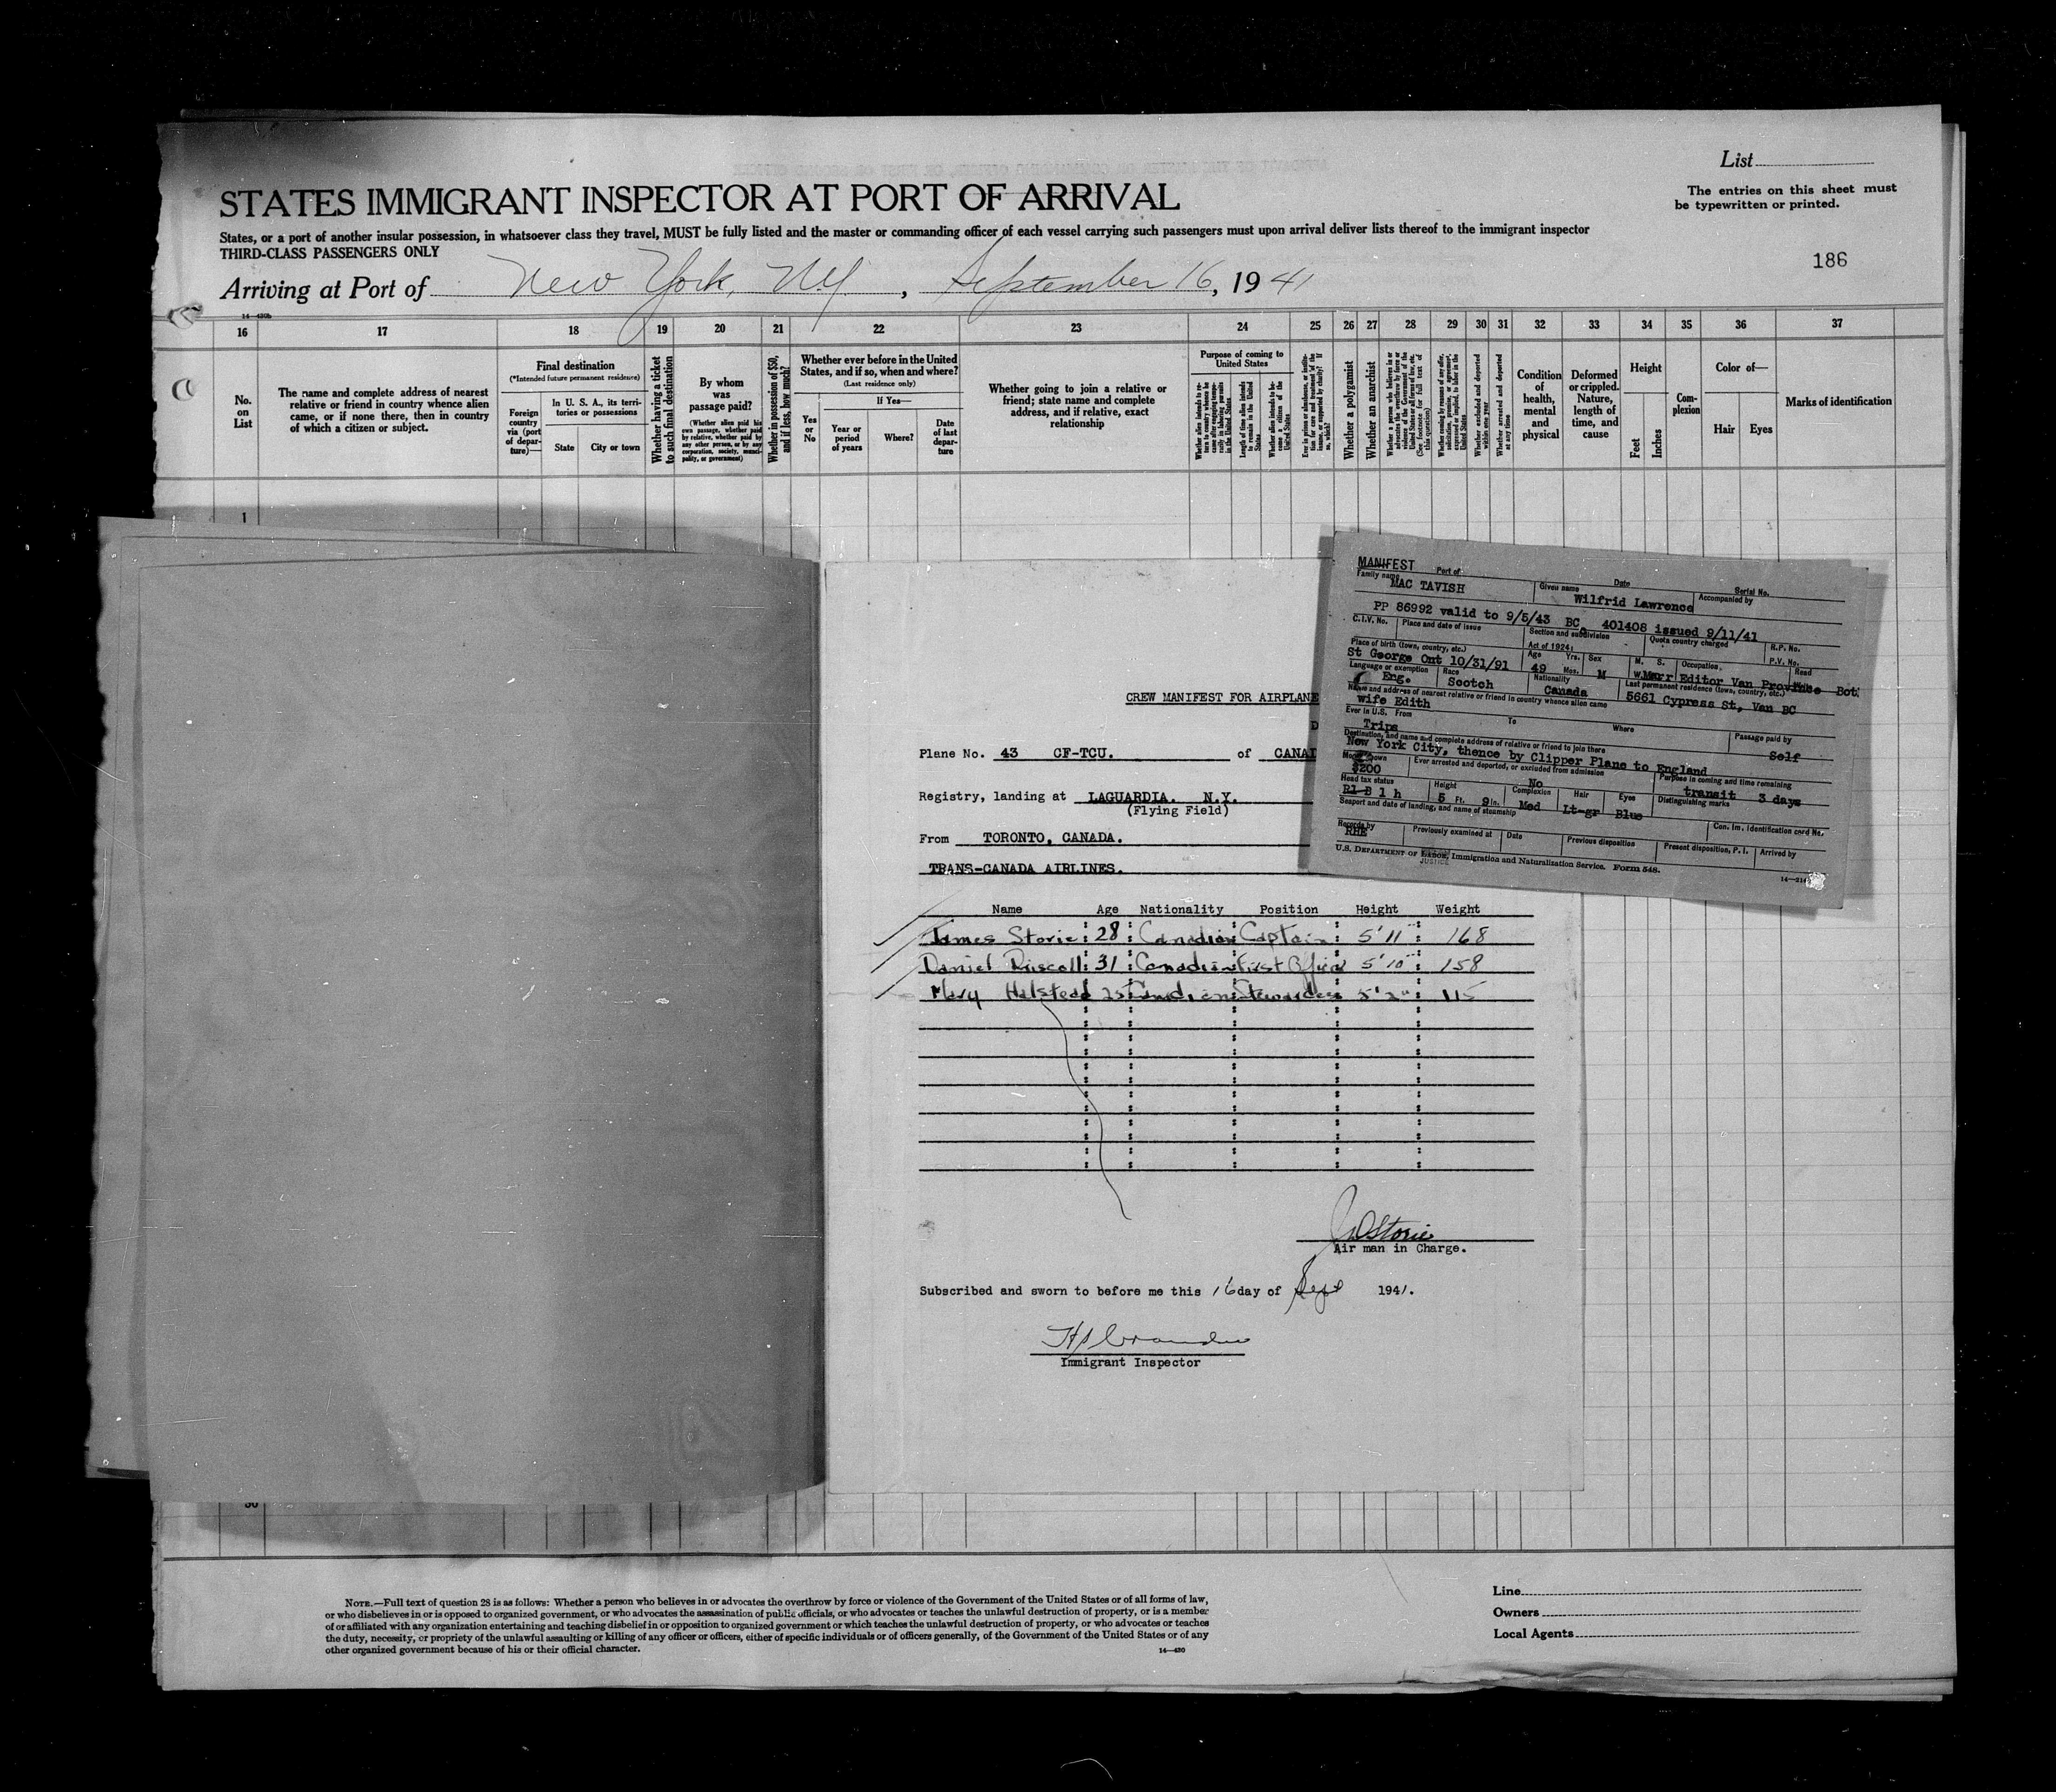 List
The entries on this sheet must
be typewritten or printed.
STATES IMMIGRANT INSPECTOR AT PORT OF ARRIVAL
States, or a port of another insular possession, in whatsoever class they travel, MUST be fully listed and the master or commanding officer of each vessel carrying such passengers must upon arrival deliver lists thereof to the immigrant inspector
THIRD-CLASS PASSENGERS ONLY
186
Arriving at Port of New York, N.Y. , September 16, 1941
14—430b
16 17 18 19 20 21 22 23 24 25 26 27 28 29 30 31 32 33 34 35 36 37
No.
on
List
The name and complete address of nearest
relative or friend in country whence alien
came, or if none there, then in country
of which a citizen or subject.
Final destination
(*Intended future permanent residence)
Foreign
country
via (port
of depar-
ture)—
In U. S. A., its terri-
tories or possessions
State
City or town
Whether having a ticket
to such final destination
By whom
was
passage paid?
(Whether alien paid his
own passage, whether paid
by relative, whether paid by
any other person, or by any
corporation, society, munici-
pality, or government)
Whether in possession of $50,
and if less, how much?
Whether ever before in the United
States, and if so, when and where?
(Last residence only)
Yes
or
No
If Yes—
Year or
period
of years
Where?
Date
of last
depar-
ture
Whether going to join a relative or
friend; state name and complete
address, and if relative, exact
relationship
Purpose of coming to
United States
Length of time alien intends
to remain in the United
States
Whether alien intends to be-
come a citizen of the
United States
Whether a polygamist
Whether an anarchist
Whether excluded and deported
within one year
Whether arrested and deported
at any time
Condition
of
health,
mental
and
physical
Deformed
or crippled.
Nature,
length of
time, and
cause
Height
Feet
Inches
Com-
plexion
Color of—
Hair
Eyes
Marks of identification
1
MANIFEST Port of Date Serial No.
Family name MAC TAVISH Given name Wilfrid Lawrence Accompanied by
PP 86992 valid to 9/5/43 BC 401408 issued 9/11/41
C.I.V. No. Place and date of issue Section and subdivision Act of 1924: Quota country charged R.P. No.
P.V. No.
Place of birth (town, country, etc.) Age Yrs. Mos. Sex M. S. W. Occupation Read
St George Ont 10/31/91 49 M Marr Editor Van Province Bot.
Language or exemption Race Nationality Last permanent residence (town, country, etc.)
Eng. Scotch Canada 5661 Cypress St, Van BC
Name and address of nearest relative or friend in country whence alien came
wife Edith
Ever in U.S. From To Where Passage paid by
Trips Self
Destination, and name and complete address of relative or friend to join there
New York City, thence by Clipper Plane to England
Money shown Ever arrested and deported, or excluded from admission Purpose in coming and time remaining
$200 No transit 3 days
Head tax status Height Complexion Hair Eyes Distinguishing marks
R1 B 1 h 5 Ft. 9 In. Med Lt-gr Blue
Seaport and date of landing, and name of steamship Con. Im. Identification card No.
Records by Previously examined at Date Previous disposition Present disposition, P. I. Arrived by
RHE
U.S. DEPARTMENT OF LABOR, Immigration and Naturalization Service. Form 548.
JUSTICE
CREW MANIFEST FOR AIRPLANE
D
Plane No. 43 CF-TCU. of CANAD
Registry, landing at LAGUARDIA. N.Y.
(Flying Field)
From TORONTO, CANADA.
TRANS-CANADA AIRLINES.
Name Age Nationality Position Height Weight
James Storie : 28 : Canadian Captain : 5'11" : 168
Daniel Driscoll : 31 : Canadian First Officer 5'10" : 158
Mary Halstead 25 Canadian Stewardess 5'2" : 115
JDStorie
Air man in Charge.
Subscribed and sworn to before me this 16 day of Sept 1941.
Immigrant Inspector
30
NOTE.—Full text of question 28 is as follows: Whether a person who believes in or advocates the overthrow by force or violence of the Government of the United States or of all forms of law,
or who disbelieves in or is opposed to organized government, or who advocates the assassination of public officials, or who advocates or teaches the unlawful destruction of property, or is a member
of or affiliated with any organization entertaining and teaching disbelief in or opposition to organized government or which teaches the unlawful destruction of property, or who advocates or teaches
the duty, necessity, or propriety of the unlawful assaulting or killing of any officer or officers, either of specific individuals or of officers generally, of the Government of the United States or of any
other organized government because of his or their official character.
14—430
Line
Owners
Local Agents